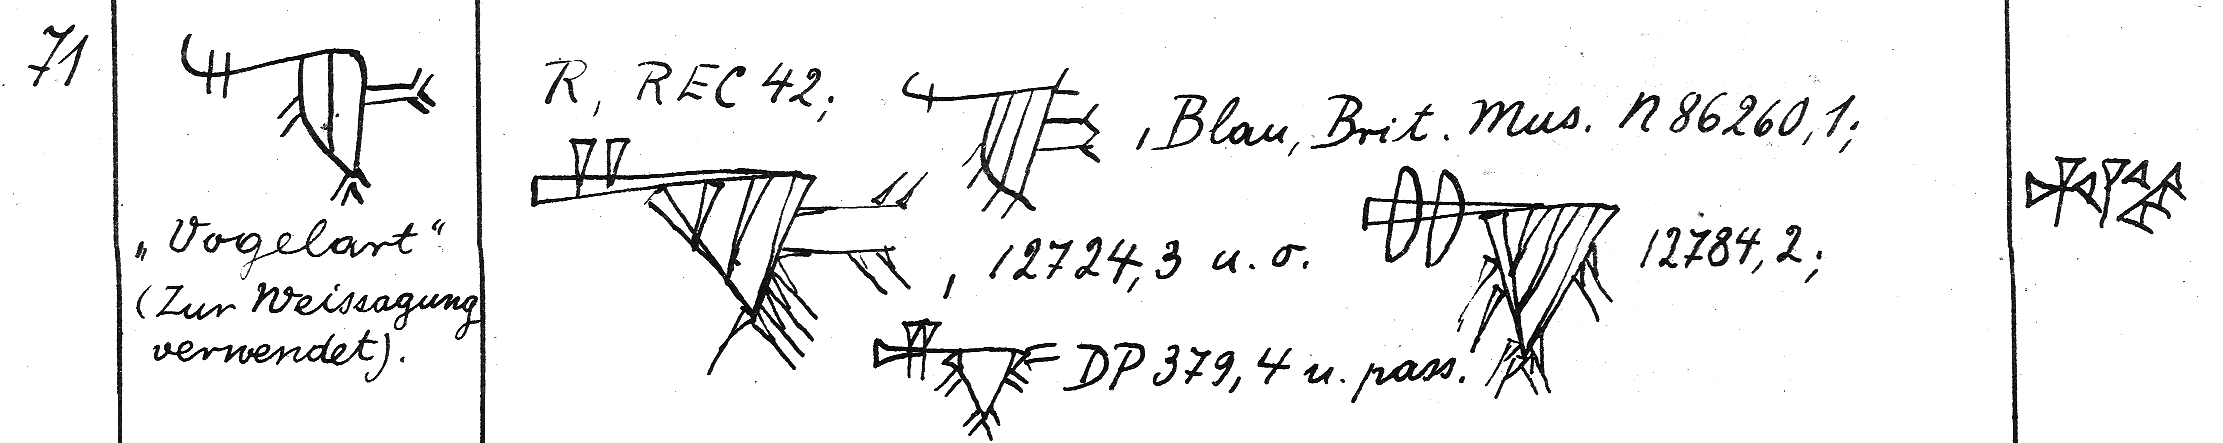 71
„Vogelart“
(Zur Weissagung
verwendet).
R, REC 42; , Blau, Brit. Mus. N 86260,1;
, 12724,3 u. o. 12784,2;
DP 379,4 u. pass.